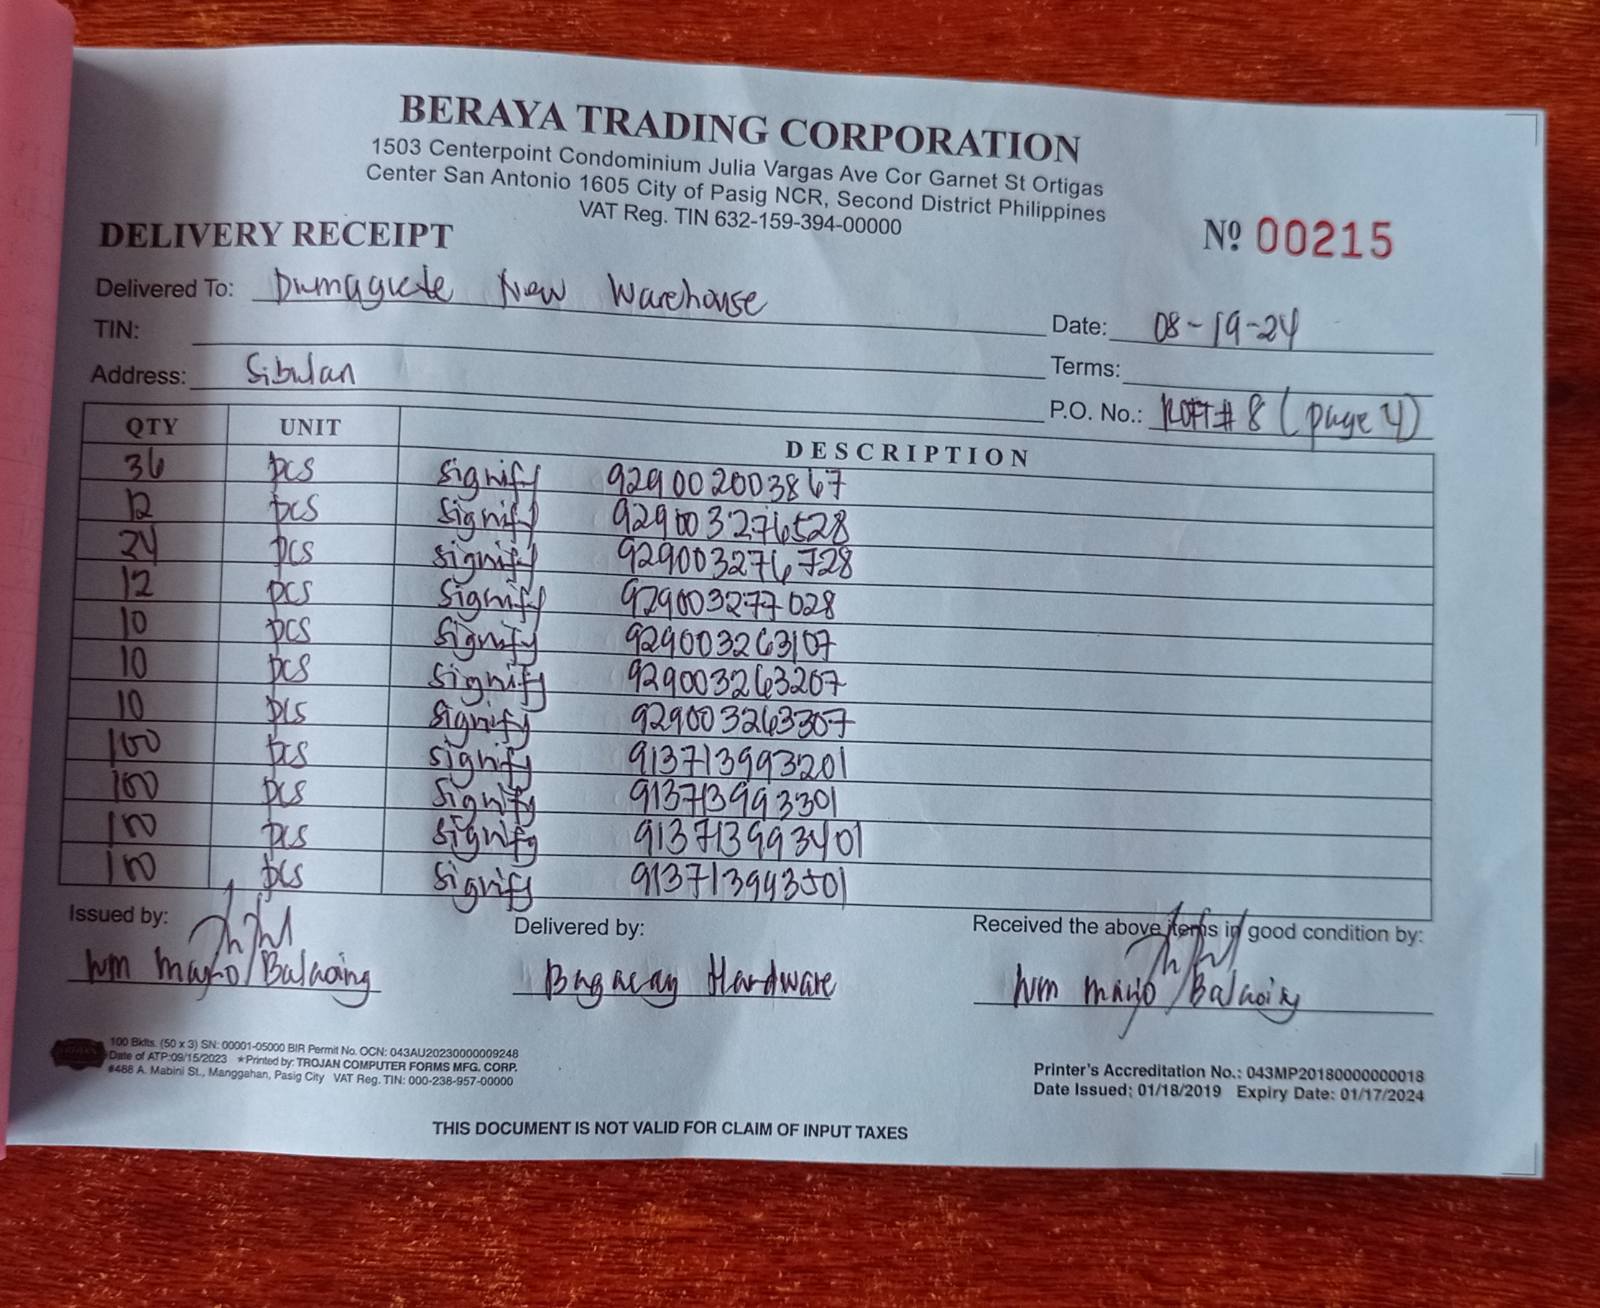 BERAYA TRADING CORPORATION
1503 Centerpoint Condominium Julia Vargas Ave Cor Garnet St Ortigas
Center San Antonio 1605 City of Pasig NCR, Second District Philippines
VAT Reg. TIN 632-159-394-00000
DELIVERY RECEIPT
Nº 00215
Delivered To: Dumaguete New Warehouse
Date: 08-19-24
TIN:
Terms:
Address: Sibulan
P.O. No.: # 8 (page 4)
QTY UNIT DESCRIPTION
36 pcs Signify 929002003867
12 pcs Signify 929003276528
24 pcs Signify 929003276728
12 pcs Signify 929003277028
10 pcs Signify 929003263107
10 pcs Signify 929003263207
10 pcs Signify 929003263307
100 pcs Signify 913713993201
100 pcs Signify 913713993301
100 pcs Signify 913713993401
100 pcs Signify 913713993501
Issued by:
Delivered by:
Received the above items in good condition by:
Bagacay Hardware
100 Bklts. (50 x 3) SN: 00001-05000 BIR Permit No. OCN: 043AU20230000009248
Date of ATP:09/15/2023 *Printed by: TROJAN COMPUTER FORMS MFG. CORP.
#488 A. Mabini St., Manggahan, Pasig City VAT Reg. TIN: 000-238-957-00000
Printer's Accreditation No.: 043MP20180000000018
Date Issued: 01/18/2019 Expiry Date: 01/17/2024
THIS DOCUMENT IS NOT VALID FOR CLAIM OF INPUT TAXES